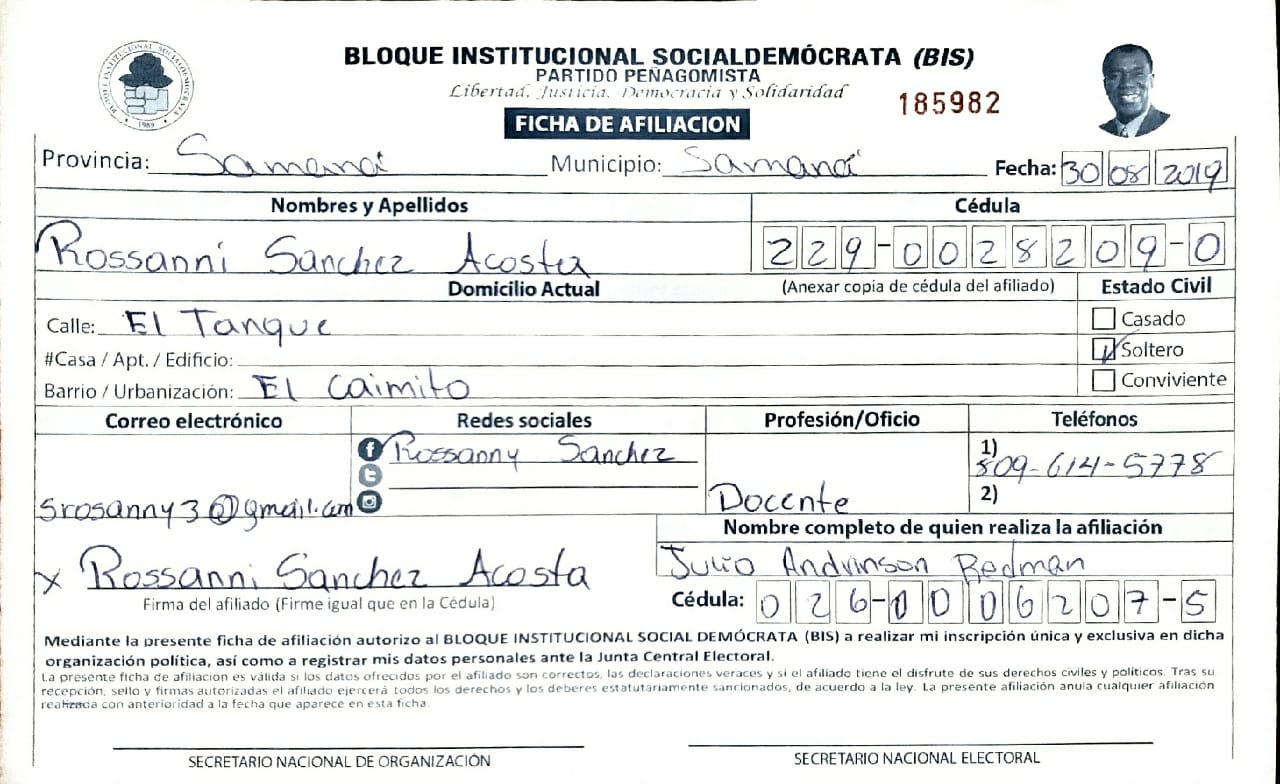 BLOQUE INSTITUCIONAL SOCIALDEMÓCRATA (BIS)
PARTIDO PEÑAGOMISTA
Libertad, Justicia, Democracia y Solidaridad
185982
FICHA DE AFILIACION
Provincia: Samaná Municipio: Samaná Fecha: 30 08 2019
Nombres y Apellidos Cédula
Rossanni Sanchez Acosta 229-0028209-0
Domicilio Actual (Anexar copia de cédula del afiliado) Estado Civil
Calle: El Tanque Casado
#Casa / Apt. / Edificio: Soltero
Barrio / Urbanización: El Caimito Conviviente
Correo electrónico Redes sociales Profesión/Oficio Teléfonos
Rossanny Sanchez 1) 809-614-5778
srosanny3@gmail.com Docente 2)
Nombre completo de quien realiza la afiliación
Julio Andrinson Redman
x Rossanni Sanchez Acosta
Firma del afiliado (Firme igual que en la Cédula) Cédula: 026-0006207-5
Mediante la presente ficha de afiliación autorizo al BLOQUE INSTITUCIONAL SOCIAL DEMÓCRATA (BIS) a realizar mi inscripción única y exclusiva en dicha
organización política, así como a registrar mis datos personales ante la Junta Central Electoral.
La presente ficha de afiliacion es válida si los datos ofrecidos por el afiliado son correctos, las declaraciones veraces y si el afiliado tiene el disfrute de sus derechos civiles y políticos. Tras su
recepción, sello y firmas autorizadas el afiliado ejercerá todos los derechos y los deberes estatutariamente sancionados, de acuerdo a la ley. La presente afiliación anula cualquier afiliación
realizada con anterioridad a la fecha que aparece en esta ficha.
SECRETARIO NACIONAL DE ORGANIZACIÓN SECRETARIO NACIONAL ELECTORAL